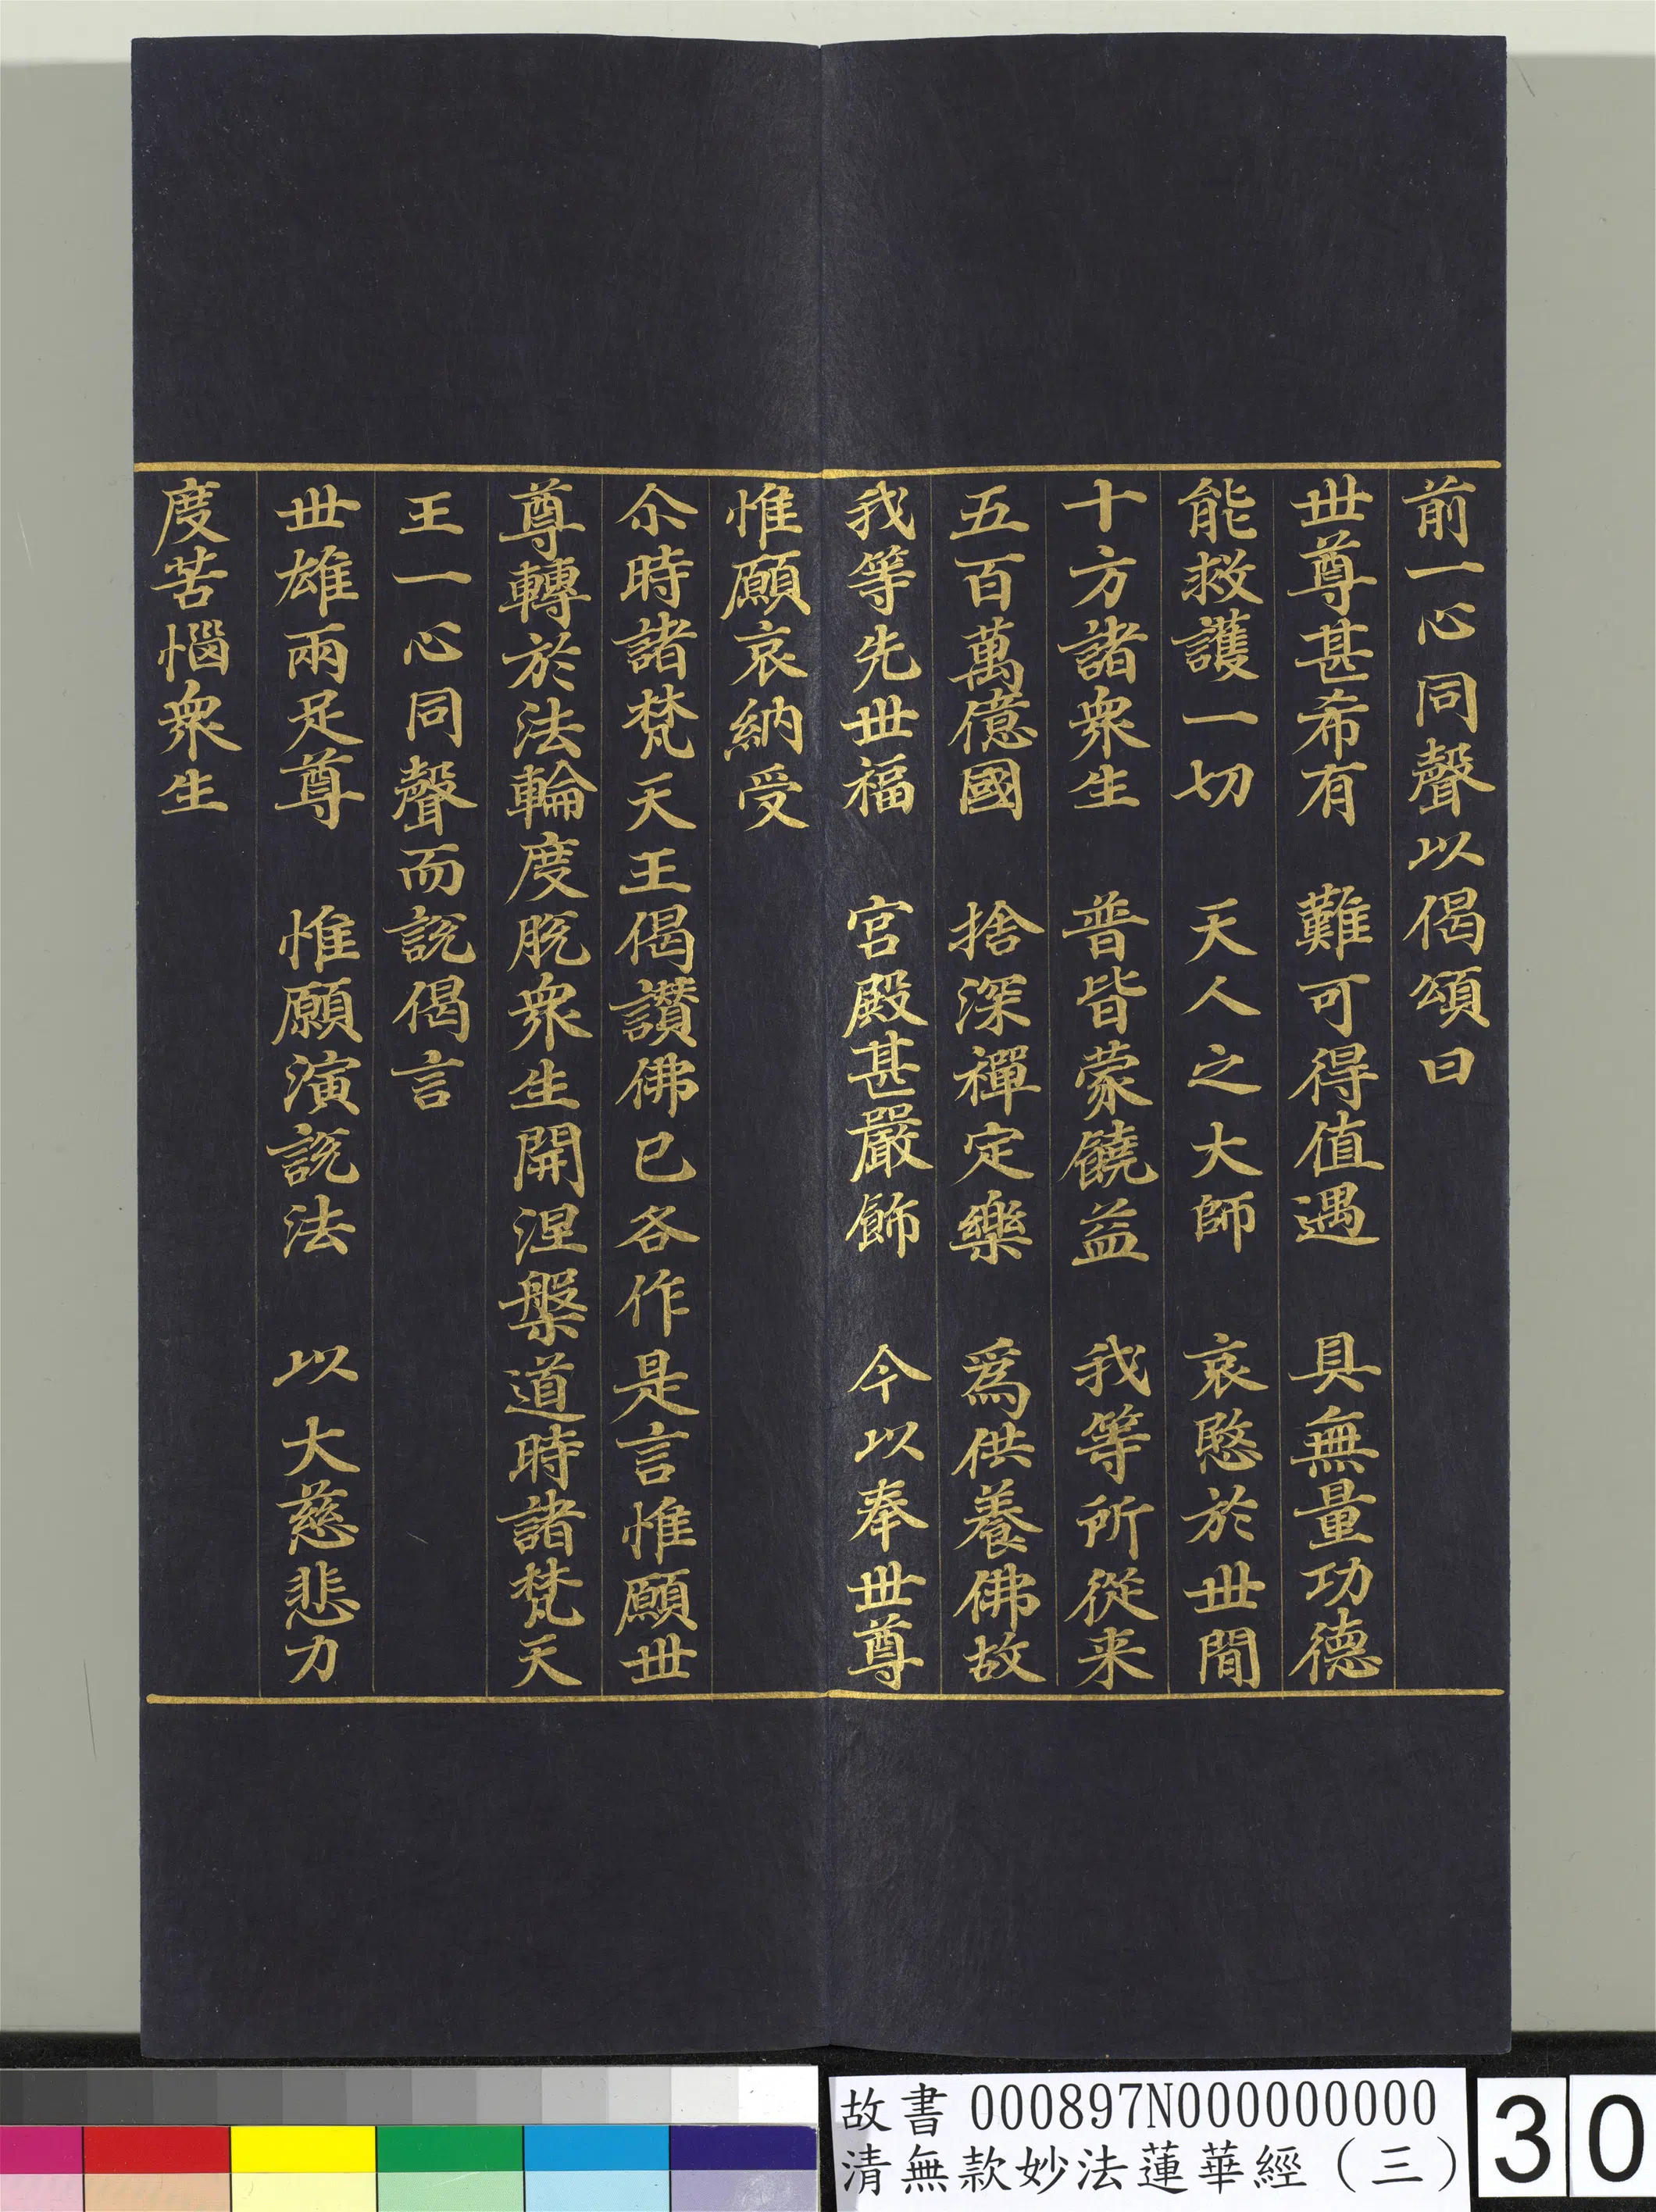 前一心同聲以偈頌曰
世尊甚希有　難可得值遇　具無量功德
能救護一切　天人之大師　哀愍於世間
十方諸衆生　普皆蒙饒益　我等所從来
五百萬億國　捨深禪定樂　爲供養佛故
我等先世福　宮殿甚嚴飾　今以奉世尊
惟願哀納受
尒時諸梵天王偈讃佛已各作是言惟願世
尊轉於法輪度脫衆生開涅槃道時諸梵天
王一心同聲而說偈言
世雄兩足尊　惟願演說法　以大慈悲力
度苦惱衆生
故書 000897N000000000
清無款妙法蓮華經（三）
30